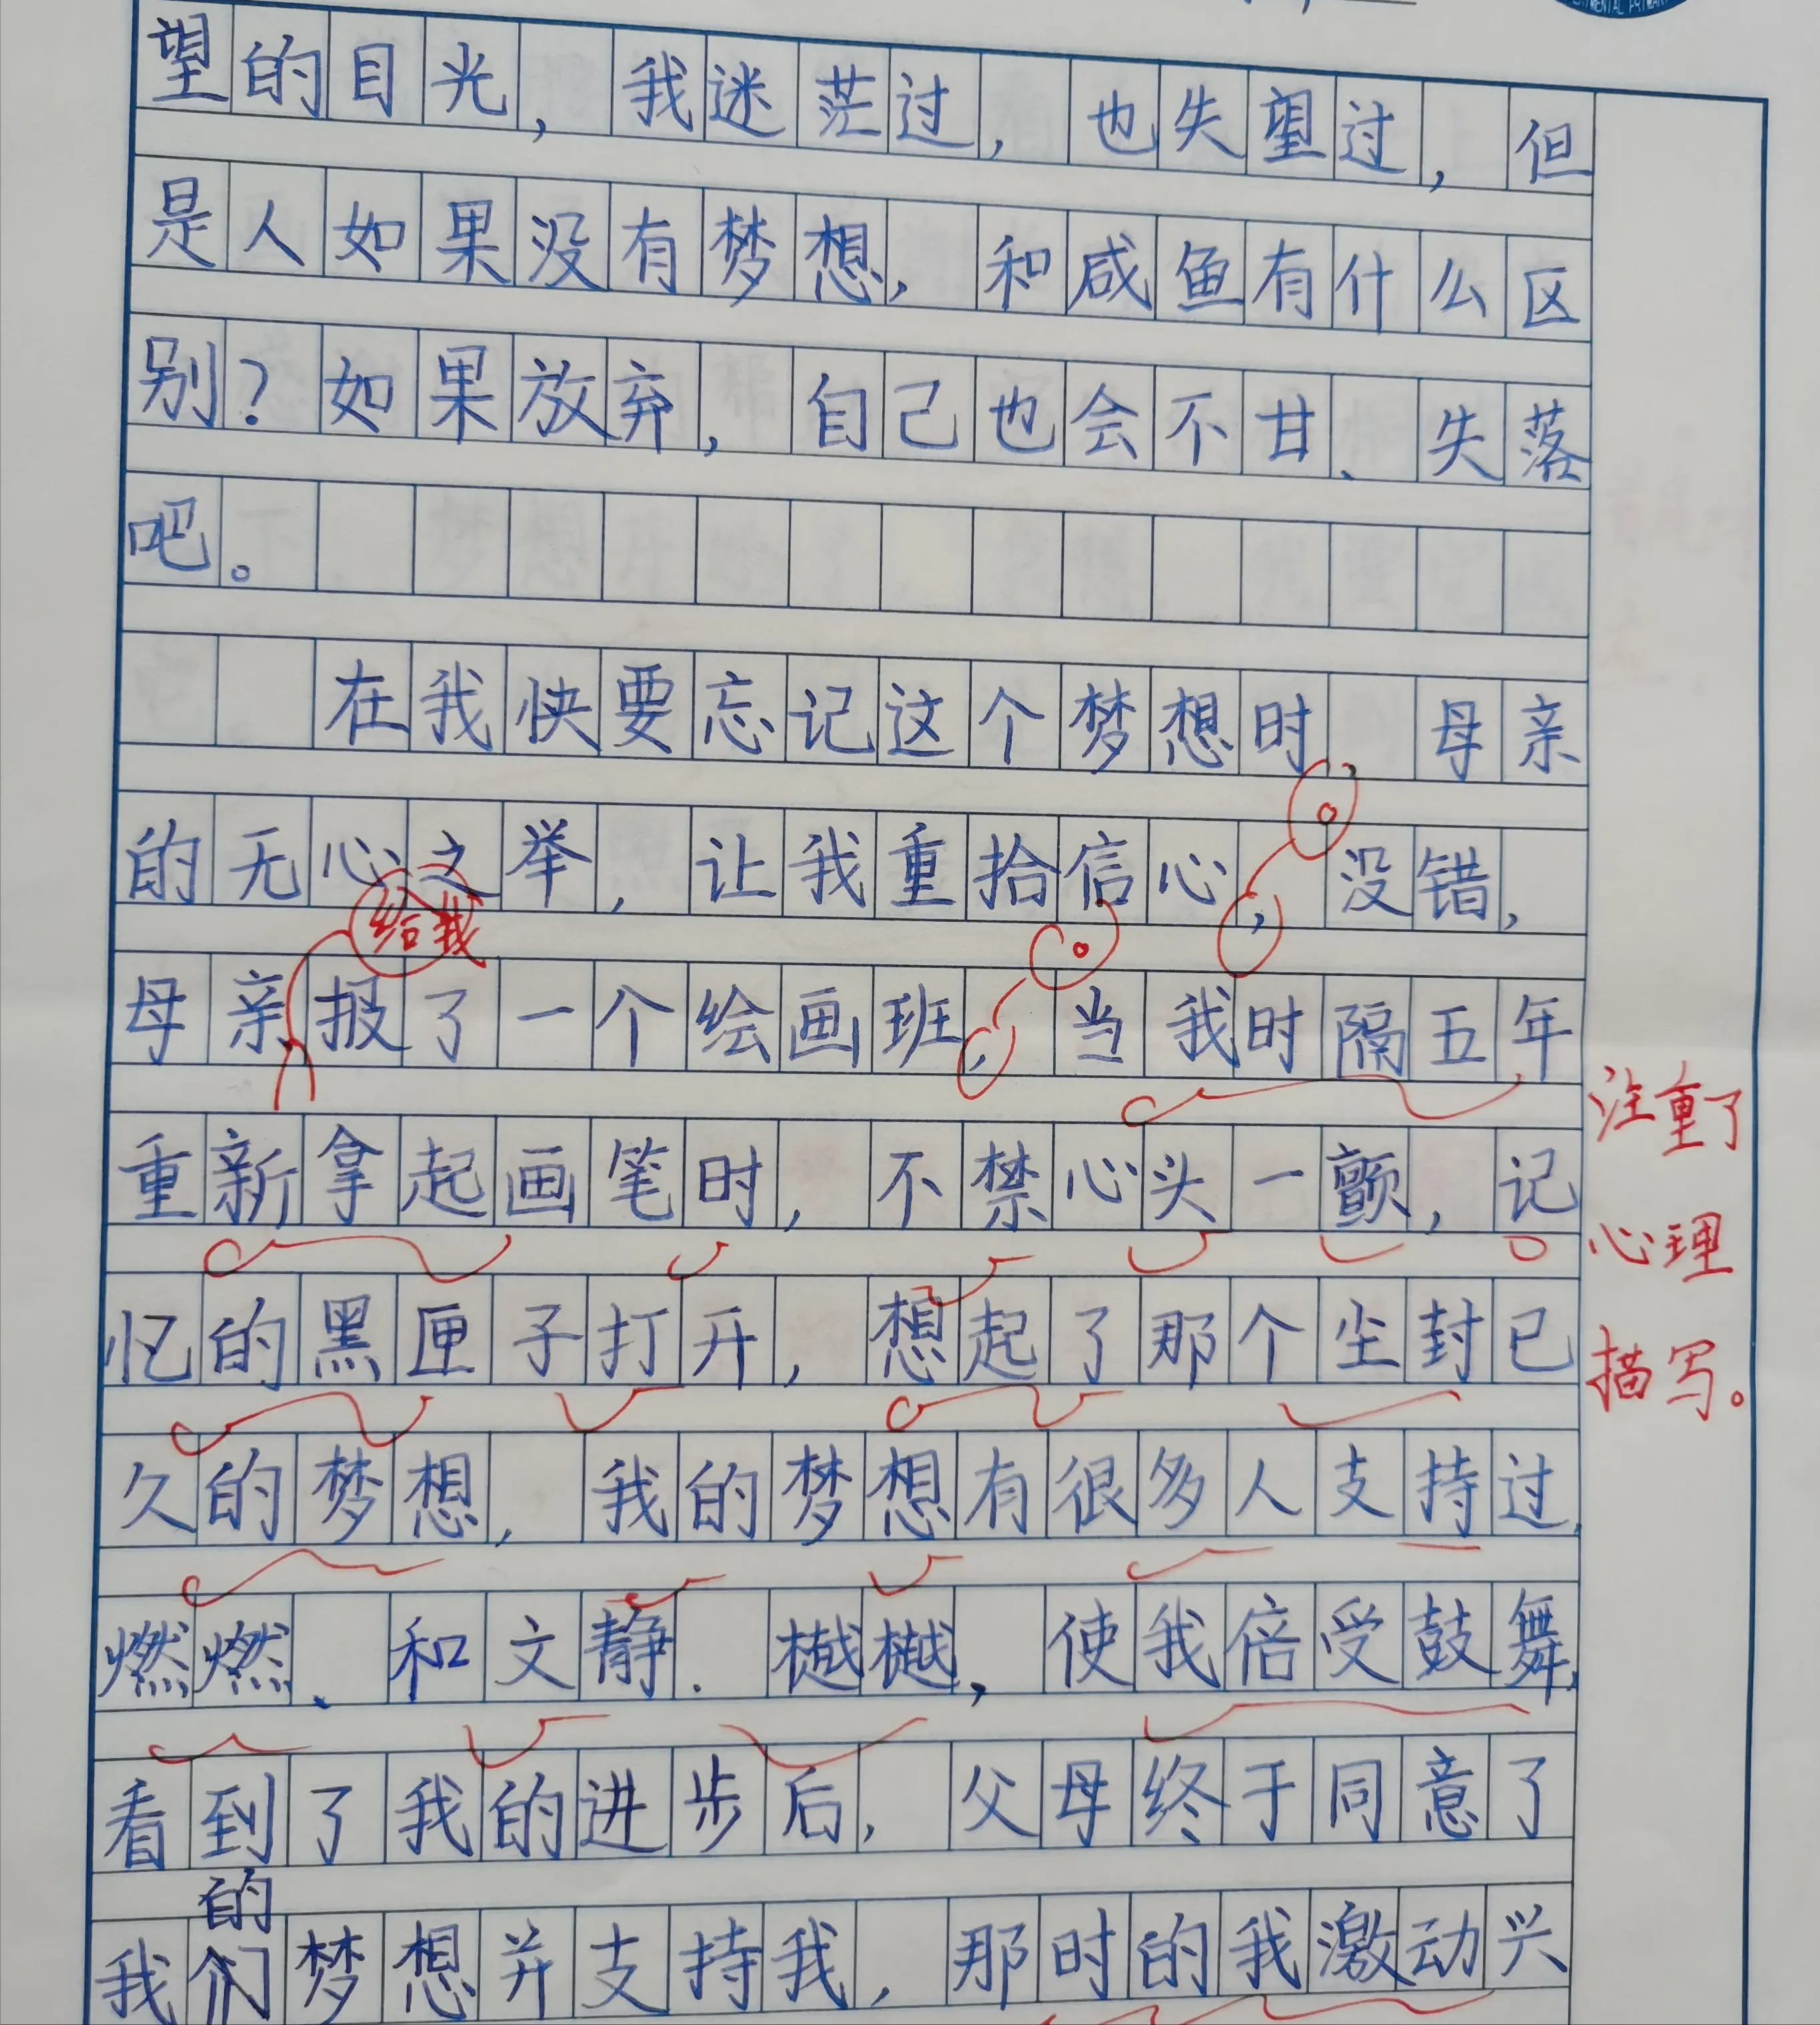 望的目光，我迷茫过，也失望过，但
是人如果没有梦想，和咸鱼有什么区
别？如果放弃，自己也会不甘、失落
吧。
在我快要忘记这个梦想时，母亲
。
的无心之举，让我重拾信心，没错，
给我
。
母亲报了一个绘画班，当我时隔五年
注重了
重新拿起画笔时，不禁心头一颤，记
心理
忆的黑匣子打开，想起了那个尘封已
描写。
久的梦想，我的梦想有很多人支持过，
燃燃、和文静．樾樾，使我倍受鼓舞，
看到了我的进步后，父母终于同意了
的
我们梦想并支持我，那时的我激动兴